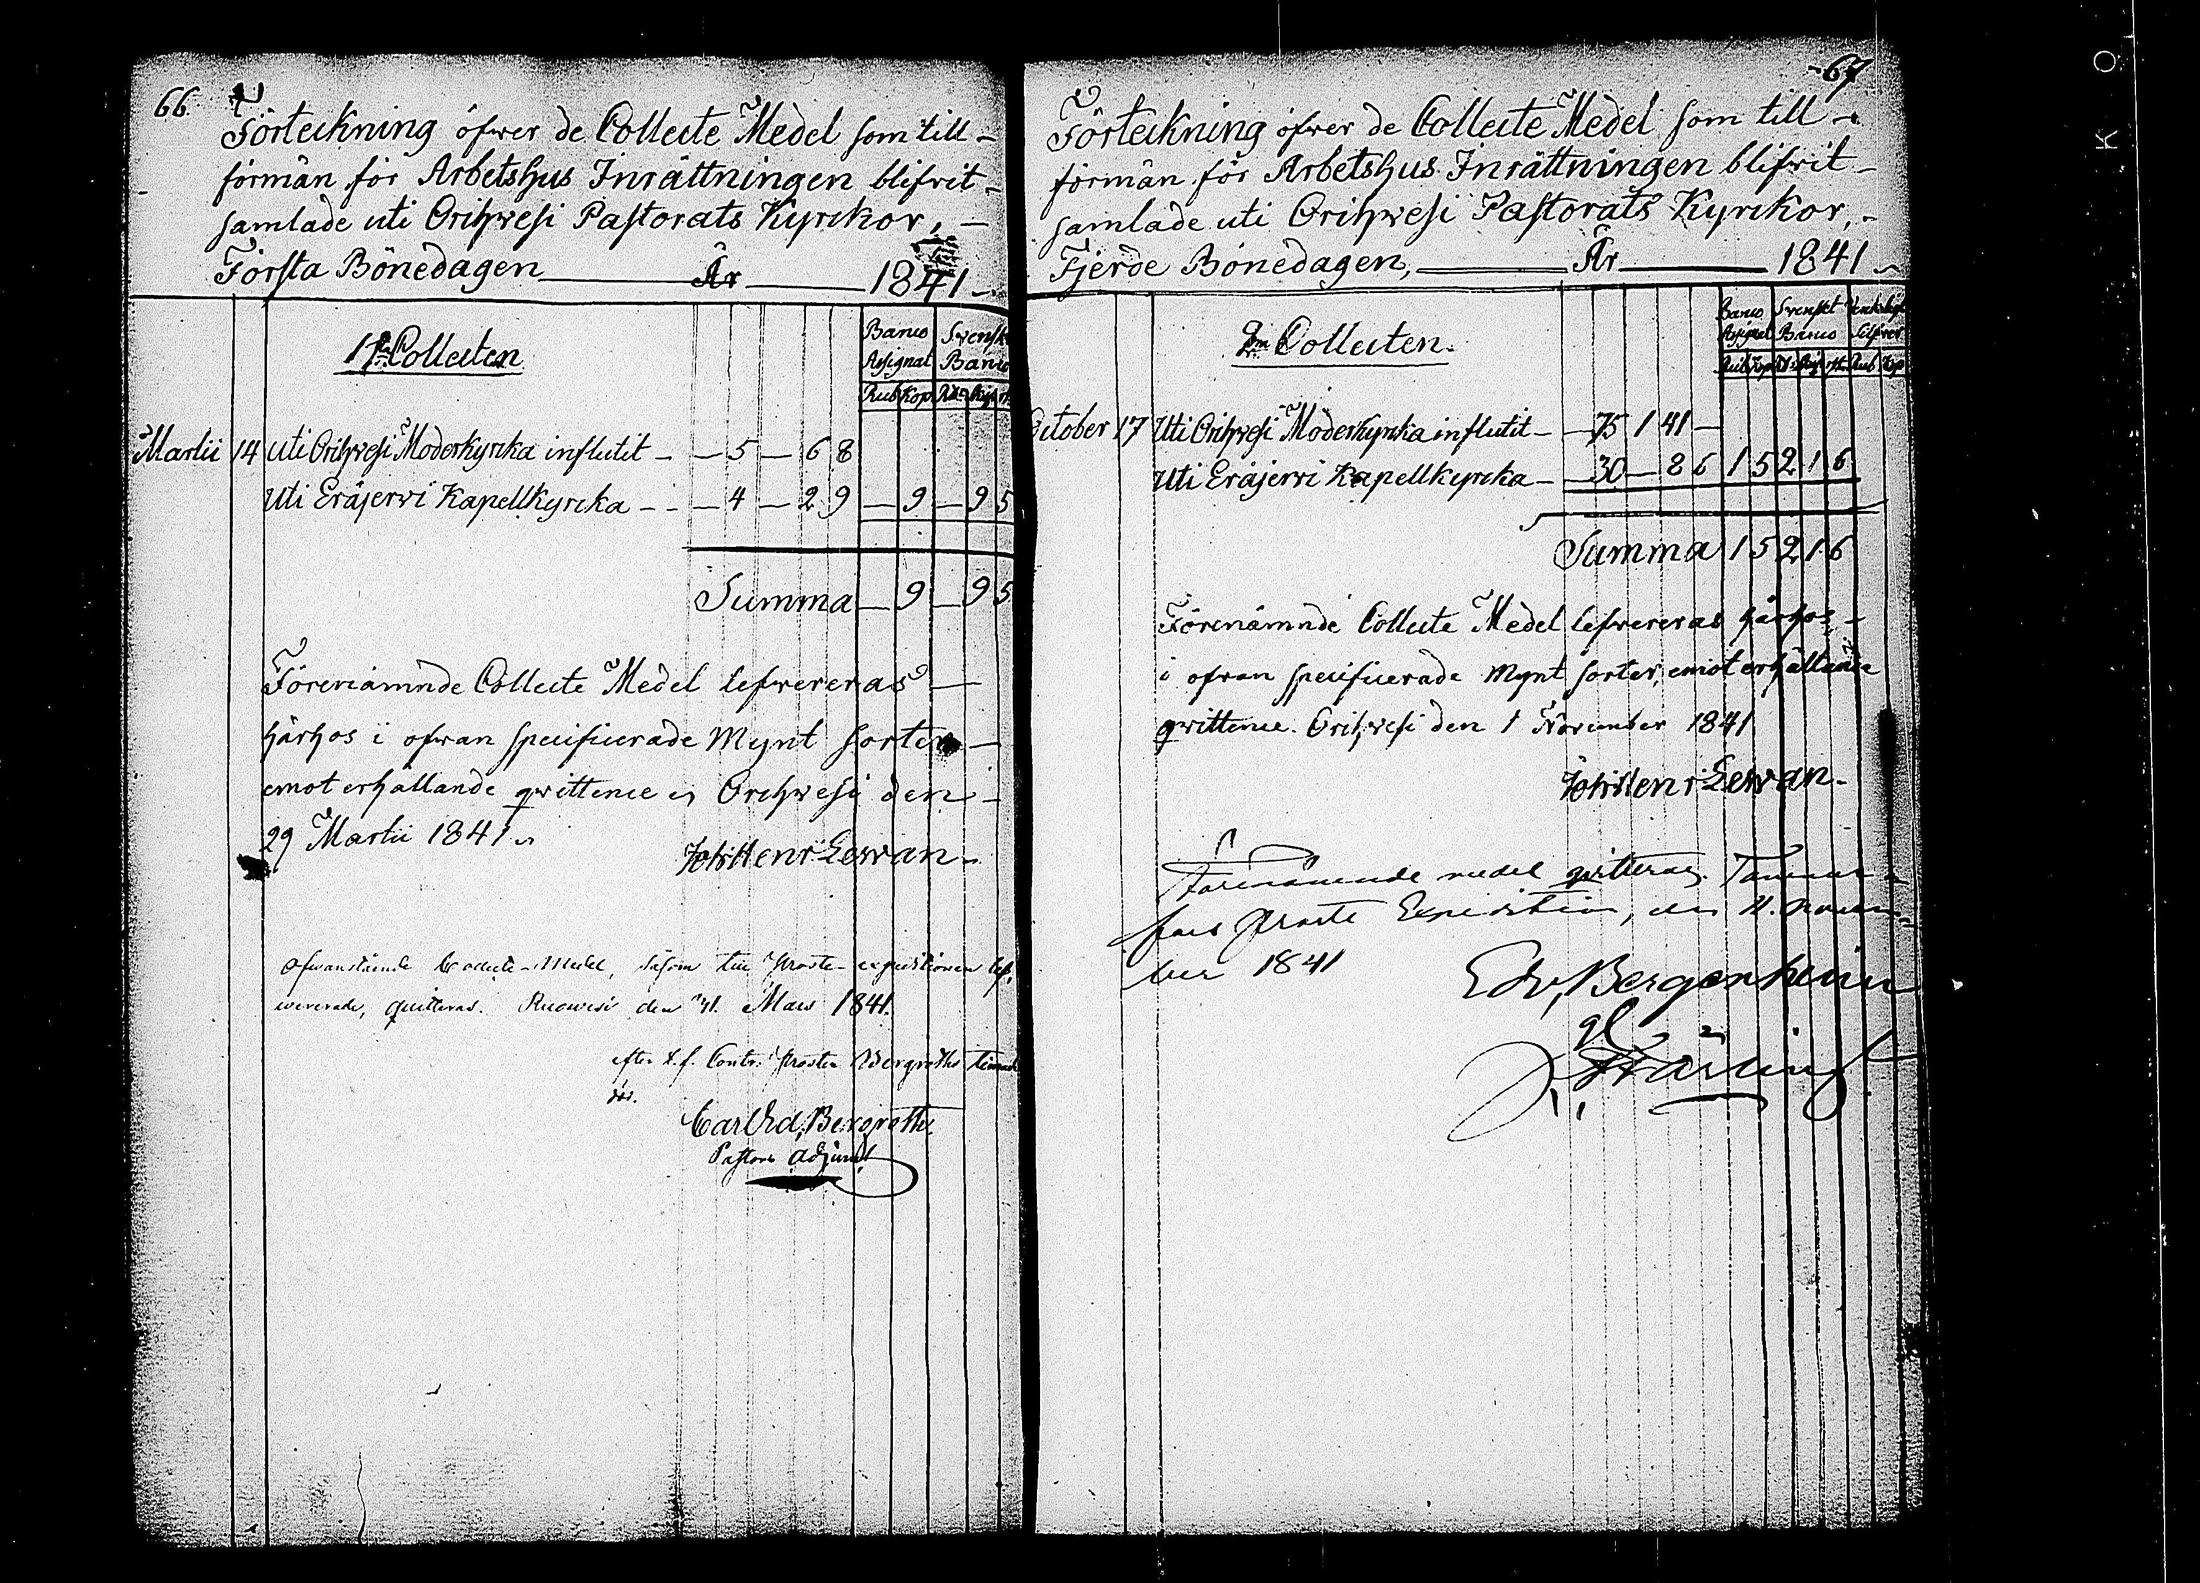 66.
Förteckning öfwer de Collecte Medel som till-
förmån för Arbetshus Inrättningen blifwit-
samlade uti Orihwesi Pastorats Kyrckor, -
Första Bönedagen År 1841
1sta Collecten
Banco Assignat Svensk Banco
Rub Kop Rdr
Martii 14 Uti Orihwesi Moderkyrcka influtit - - 5 - 68
Uti Eräjerwi Kapellkyrcka - - 4 - 29 - 9 - 95
Summa - 9 - 95
Förenämnde Collecte Medel lefwereras -
härhos i ofwan specificerade Mynt sorter -
emot erhållande qwittence Orihwesi den -
29 Martii 1841
Joh: Henr: Lewan-
Ofwanstående Collecte-Medel, såsom till Prosteexpeditionen lef-
wererade, quitteras. Ruowesi den 31. Mars 1841.
efter Contr. Prosten Bergroths
Carl Ed. Bergroth
Pastors Adjunct
67
Förteckning öfwer de Collecte Medel som till
förmån för Arbetshus Inrättningen blifwit-
samlade uti Orihwesi Pastorats Kyrckor, -
Fjerde Bönedagen, År 1841
2dra Collecten.
Banco Assignat Svenskt Banco Silfver
Rub Kop Rub Kop
October 17 Uti Orihwesi Moderkyrcka influtit - - 75 1 41 -
Uti Eräjerwi Kapellkyrcka - - 30 - 86 1 5 2 1 6
Summa 1 5 2 1 6
Förenämnde Collecte Medel lefwereras härhos -
i ofwan specificerade Mynt sorter, emot erhållande
qwittence. Orihwesi den 1 November 1841
Joh: Henr: Lewan-
Förenämnde medel qvitteras. Tammer-
fors Proste Expedition, den 11. Novem-
ber 1841
Edv. Bergenheim